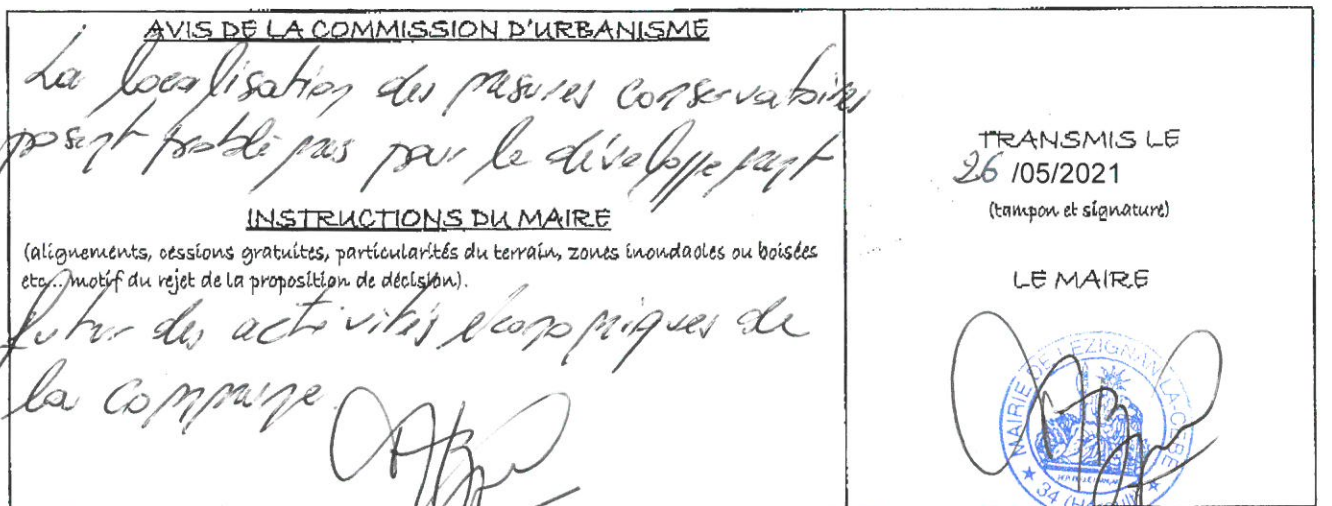 AVIS DE LA COMMISSION D'URBANISME
La localisation des mesures conservatoires
posent problèmes pour le développement
INSTRUCTIONS DU MAIRE
(alignements, cessions gratuites, particularités du terrain, zones inondables ou boisées
etc...motif du rejet de la proposition de décision).
futur des activités économiques de
la commune.
TRANSMIS LE
26 /05/2021
(tampon et signature)
LE MAIRE
MAIRIE DE LEZIGNAN-LA-CEBE
34 (HERAULT)